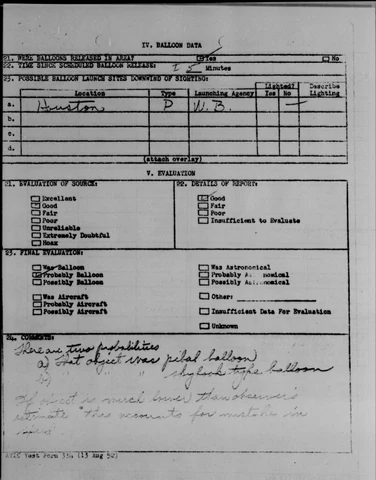 IV. BALLOON DATA
21. WERE BALLOONS RELEASED IN AREA? Yes No
22. TIME SINCE SCHEDULED BALLOON RELEASE: I 5 Minutes
23. POSSIBLE BALLOON LAUNCH SITES DOWNWIND OF SIGHTING:
Location Type Launching Agency Lighted? Yes No Describe Lighting
a. Houston P W.B. —
b.
c.
d.
(attach overlay)
V. EVALUATION
21. EVALUATION OF SOURCE: 22. DETAILS OF REPORT:
Excellent Good
Good Fair
Fair Poor
Poor Insufficient to Evaluate
Unreliable
Extremely Doubtful
Hoax
23. FINAL EVALUATION:
Was Balloon Was Astronomical
Probably Balloon Probably Astronomical
Possibly Balloon Possibly Astronomical
Was Aircraft Other:
Probably Aircraft
Possibly Aircraft Insufficient Data For Evaluation
Unknown
24. COMMENTS:
There are two probabilities
a) That object was pibal balloon
b) " " " skyhook type balloon
If object is much lower than observer's
estimate this accounts for mistake in
ATIC Test Form 334 (13 Aug 52)